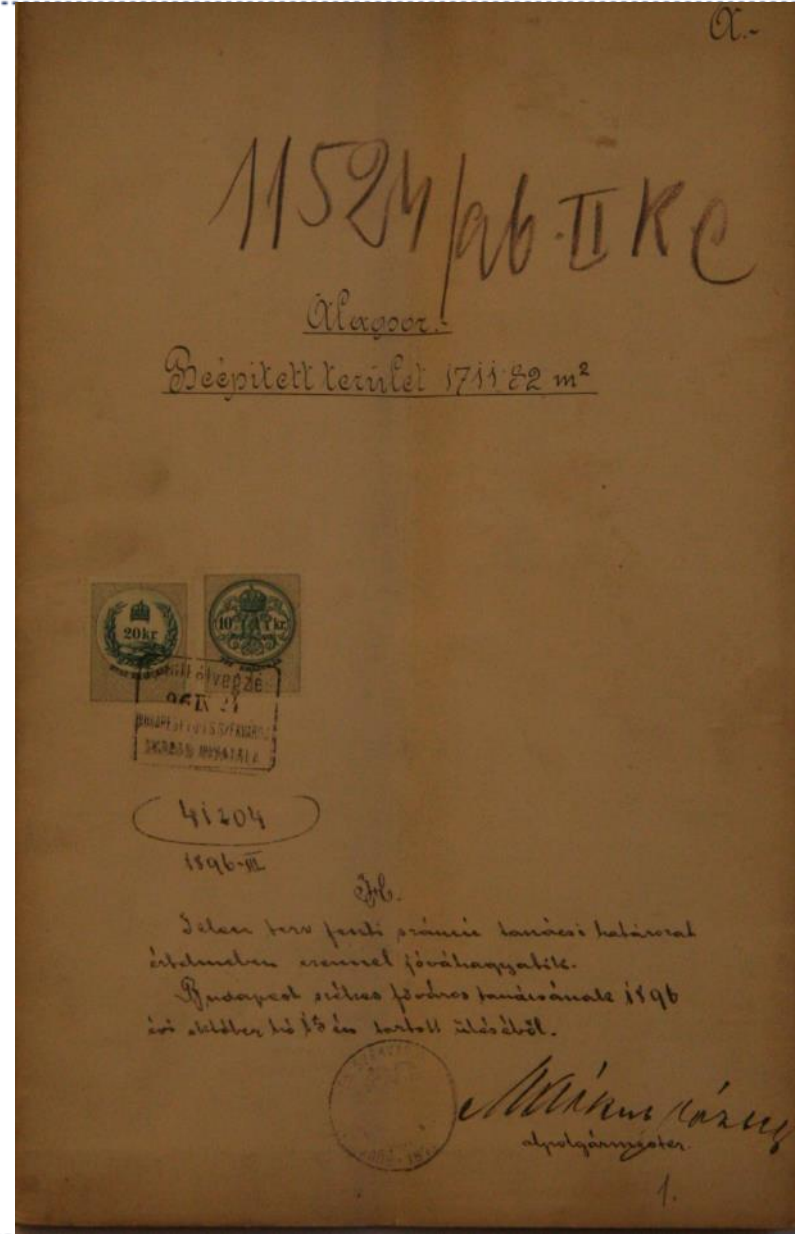 A.-
11524/96.II K C
Alagsor.-
Beépített terület 1711·82 m²
20 kr
10 kr
96 IX 21
41204
1896-III
H.
Jelen terv fenti számú tanácsi határozat
értelmében ezennel jóváhagyatik.
Budapest székes főváros tanácsának 1896
évi október hó 15 én tartott üléséből.
Márkus József
alpolgármester.
1.